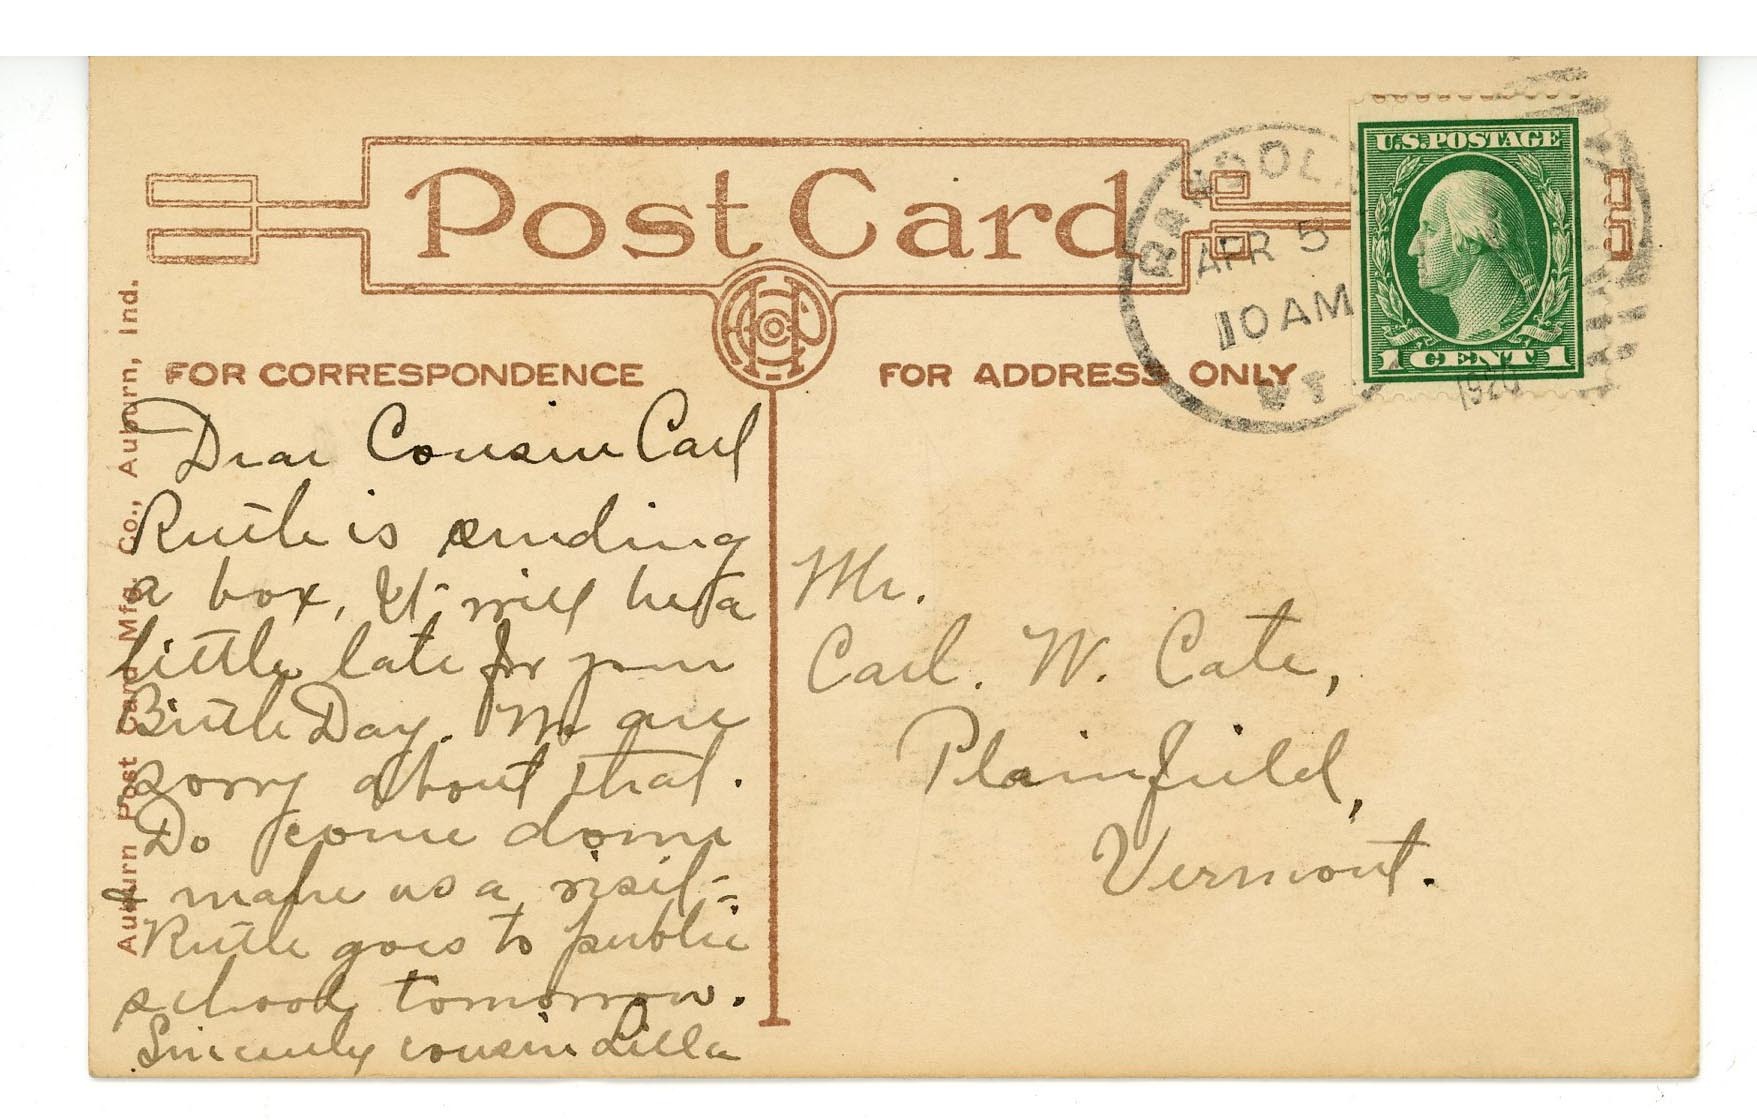 Post Card
U.S. POSTAGE
1 CENT 1
APR 5
10 AM
FOR CORRESPONDENCE
FOR ADDRESS ONLY
Auburn Post Card Mfg. Co., Auburn, Ind.
Dear Cousin Carl
Ruth is sending
a box, It will be a
little late for your
Birth Day. We are
sorry about that.
Do come down
& make us a visit-
Ruth goes to public
school tomorrow.
Sincerely cousin Lilla
Mr.
Carl. W. Cate,
Plainfield,
Vermont.